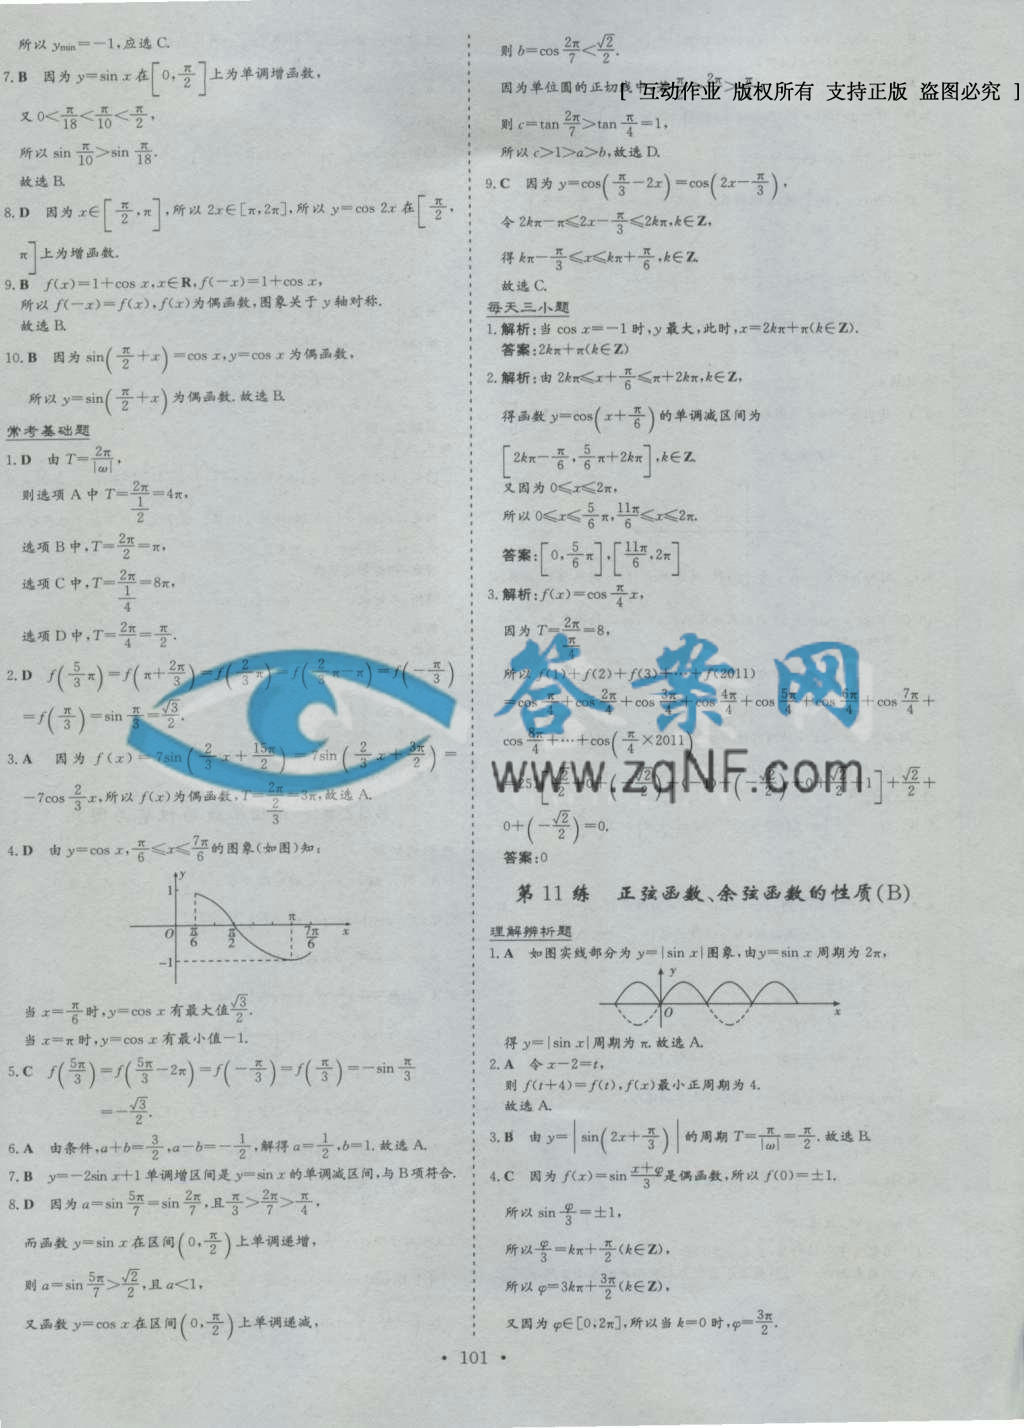 所以 ymin=-1,应选 C.
7. B 因为 y=sin x 在[0,π/2]上为单调增函数,
又 0<π/18<π/10<π/2,
所以 sin π/10>sin π/18.
故选 B.
8. D 因为 x∈[π/2,π],所以 2x∈[π,2π],所以 y=cos 2x 在[π/2,
π]上为增函数.
9. B f(x)=1+cos x,x∈R,f(-x)=1+cos x,
所以 f(-x)=f(x),f(x)为偶函数,图象关于 y 轴对称.
故选 B.
10. B 因为 sin(π/2+x)=cos x,y=cos x 为偶函数,
所以 y=sin(π/2+x)为偶函数.故选 B.
常考基础题
1. D 由 T=2π/|ω|,
则选项 A 中 T=2π/(1/2)=4π,
选项 B 中,T=2π/2=π,
选项 C 中,T=2π/(1/4)=8π,
选项 D 中,T=2π/4=π/2.
2. D f(5/3 π)=f(π+2π/3)=f(2/3 π)=f(2/3 π-π)=f(-π/3)
=f(π/3)=sin π/3=√3/2.
3. A 因为 f(x)=7sin(2/3 x+15π/2)=7sin(2/3 x+3π/2)=
-7cos 2/3 x,所以 f(x)为偶函数,T=2π/(2/3)=3π,故选 A.
4. D 由 y=cos x,π/6≤x≤7π/6的图象(如图)知:
y
1
π
O π/6 π/2 7π/6 x
-1
当 x=π/6时,y=cos x 有最大值√3/2.
当 x=π 时,y=cos x 有最小值-1.
5. C f(5π/3)=f(5π/3-2π)=f(-π/3)=f(π/3)=-sin π/3
=-√3/2.
6. A 由条件,a+b=3/2,a-b=-1/2,解得 a=1/2,b=1.故选 A.
7. B y=-2sin x+1 单调增区间是 y=sin x 的单调减区间,与 B 项符合.
8. D 因为 a=sin 5π/7=sin 2π/7,且π/3>2π/7>π/4,
而函数 y=sin x 在区间(0,π/2)上单调递增,
则 a=sin 5π/7>√2/2,且 a<1,
又函数 y=cos x 在区间(0,π/2)上单调递减,
则 b=cos 2π/7<√2/2.
因为单位圆的正切线中,
[ 互动作业 版权所有 支持正版 盗图必究 ]
则 c=tan 2π/7>tan π/4=1,
所以 c>1>a>b,故选 D.
9. C 因为 y=cos(π/3-2x)=cos(2x-π/3),
令 2kπ-π≤2x-π/3≤2kπ,k∈Z,
得 kπ-π/3≤x≤kπ+π/6,k∈Z.
故选 C.
每天三小题
1. 解析:当 cos x=-1 时,y 最大,此时,x=2kπ+π(k∈Z).
答案:2kπ+π(k∈Z)
2. 解析:由 2kπ≤x+π/6≤π+2kπ,k∈Z,
得函数 y=cos(x+π/6)的单调减区间为
[2kπ-π/6,5/6 π+2kπ],k∈Z.
又因为 0≤x≤2π,
所以 0≤x≤5/6 π,11π/6≤x≤2π.
答案:[0,5/6 π],[11π/6,2π]
3. 解析:f(x)=cos π/4 x,
因为 T=2π/(π/4)=8,
所以 f(1)+f(2)+f(3)+…+f(2011)
=cos π/4+cos 2π/4+cos 3π/4+cos 4π/4+cos 5π/4+cos 6π/4+cos 7π/4+
cos 8π/4+…+cos(π/4×2011)
+√2/2+
0+(-√2/2)=0.
答案:0
第 11 练 正弦函数、余弦函数的性质(B)
理解辨析题
1. A 如图实线部分为 y=|sin x|图象,由y=sin x 周期为 2π,
y
O x
得 y=|sin x|周期为 π.故选 A.
2. A 令 x-2=t,
则 f(t+4)=f(t),f(x)最小正周期为 4.
故选 A.
3. B 由 y=|sin(2x+π/3)|的周期 T=π/|ω|=π/2.故选 B.
4. C 因为 f(x)=sin (x+φ)/3是偶函数,所以 f(0)=±1,
所以 sin φ/3=±1,
所以φ/3=kπ+π/2(k∈Z),
所以 φ=3kπ+3π/2(k∈Z),
又因为 φ∈[0,2π],所以当 k=0 时,φ=3π/2.
• 101 •
答案网
www.zqNF.com